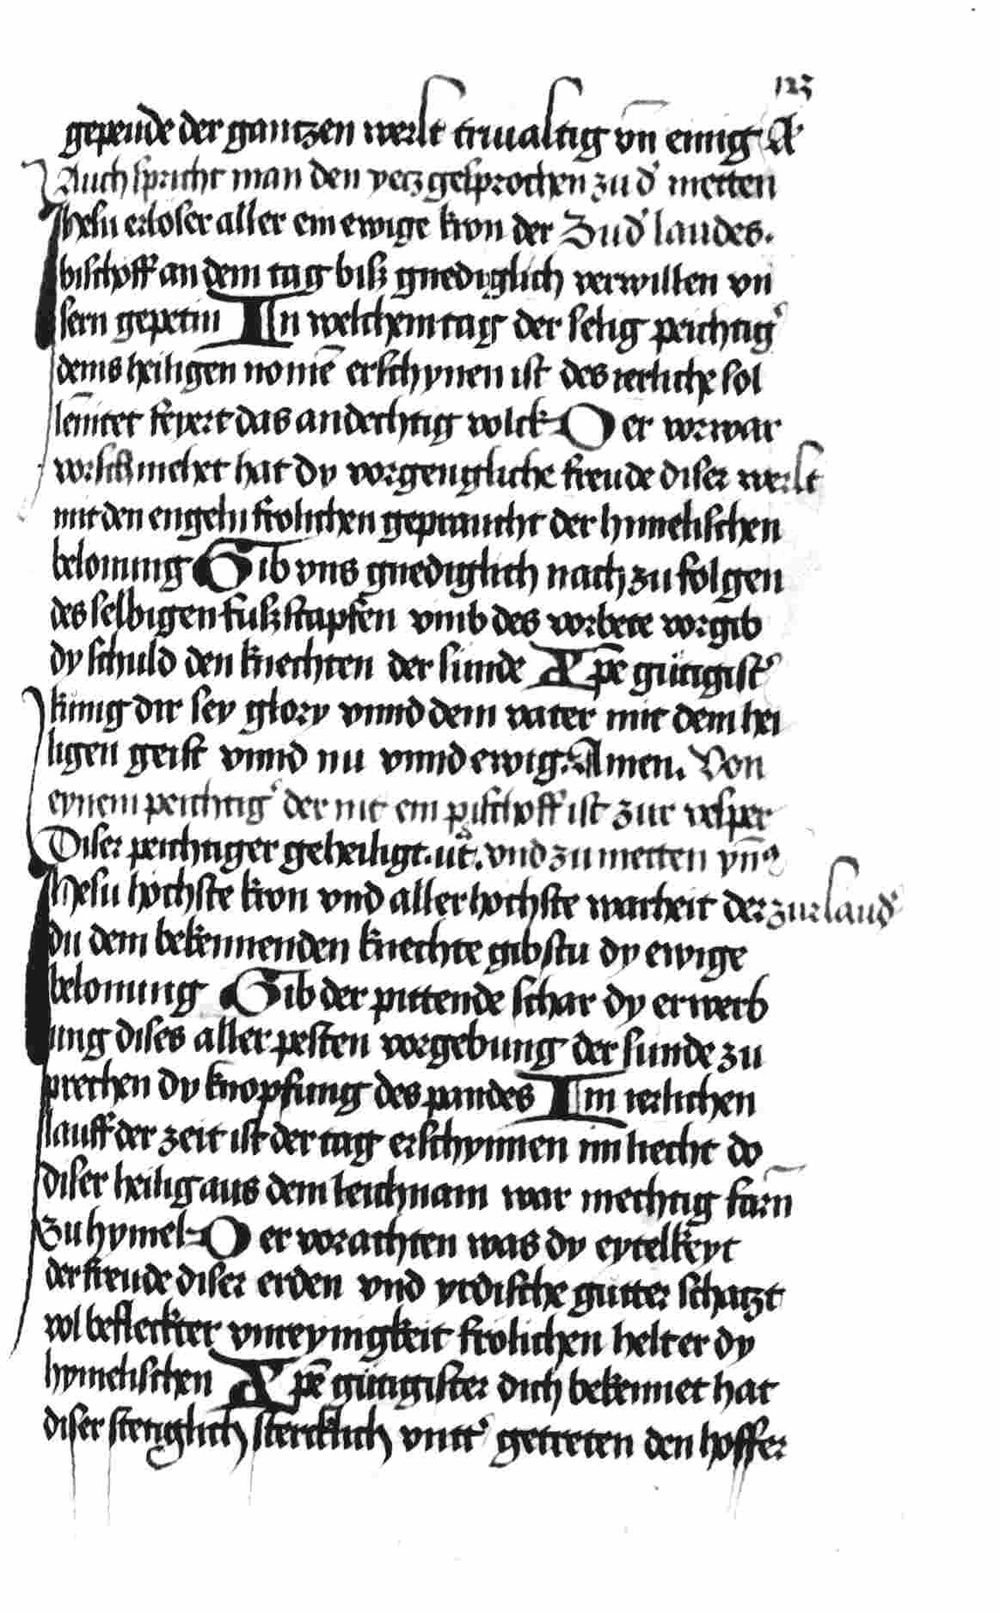 123
gepende der gantzen werlt triualtig vn̄ einig A
Auch spricht man den yetz gesprochen zu d' metten
Jhesu erloser aller ein ewige kron der Zu d' laudes.
bischoff an dem tag bisz gnediglich verwillen vn
sern gepetin In welchem tag der selig peichtig'
deins heiligen nomē erschynen ist des ierliche sol
lēnitet feyert das andechtig volck O er vorwar
vorschmehet hat dy vorgengliche freude diser werlt
mit den engeln frolichen gepraucht der himelischen
belonung Gib vns gnediglich nach zu folgen
des selbigen fuszstapfen vmb des vorbete vorgib
dy schuld den knechten der sunde Xpē gütigist'
künig dir sey glory vnnd dem vater mit dem hei
ligen geist vnnd nu vnnd ewig. Amen. Von
eynem peichtig' der nit ein pischoff ist zur vesper
Diser peichtiger geheiligt. ut. vnd zu metten ym
Jhesu hochste kron vnd aller hochste warheit der zur laud'
du dem bekennenden knechte gibstu dy ewige
belonung Gib der pittende schar dy erwerb
ung dises aller pesten vorgebung der sunde zu
prechen dy knopfung des pandes Im ierlichen
lauff der zeit ist der tag erschynnen im liecht do
diser heilig aus dem leichnam war mechtig farn̄
zu hymel O er vorachten was dy eytelkeyt
der freude diser erden vnd yrdische gutter schatzt
vol befleckter vnreynigkeit frolichen helt er dy
hymelischen Xpē gütigister dich bekennet hat
diser stetiglich stercklich vntt' getreten den hoffer